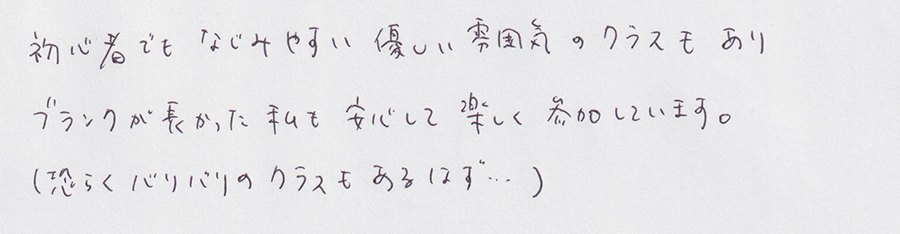 初心者でも なじみやすい 優しい 雰囲気 の クラスも あり
ブランクが 長かった 私も 安心して 楽しく 参加しています。
(恐らく バリバリの クラスも あるはず…)